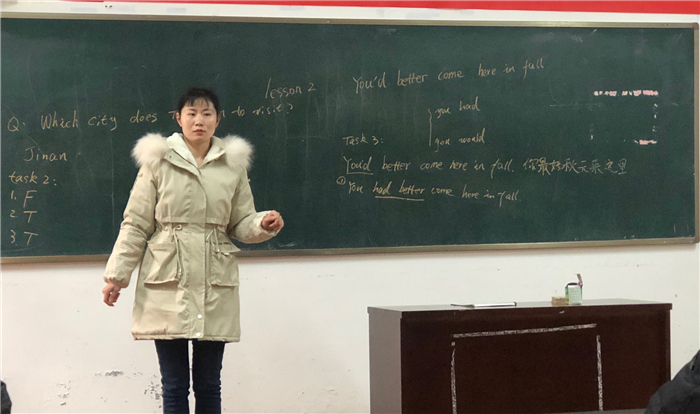 lesson 2
Q. Which city does to visit?
Jinan
task 2:
1. F
2. T
3. T
You'd better come here in fall
you had
Task 3:
you would
You'd better come here in fall. 你最好秋天来这里
① You had better come here in fall.